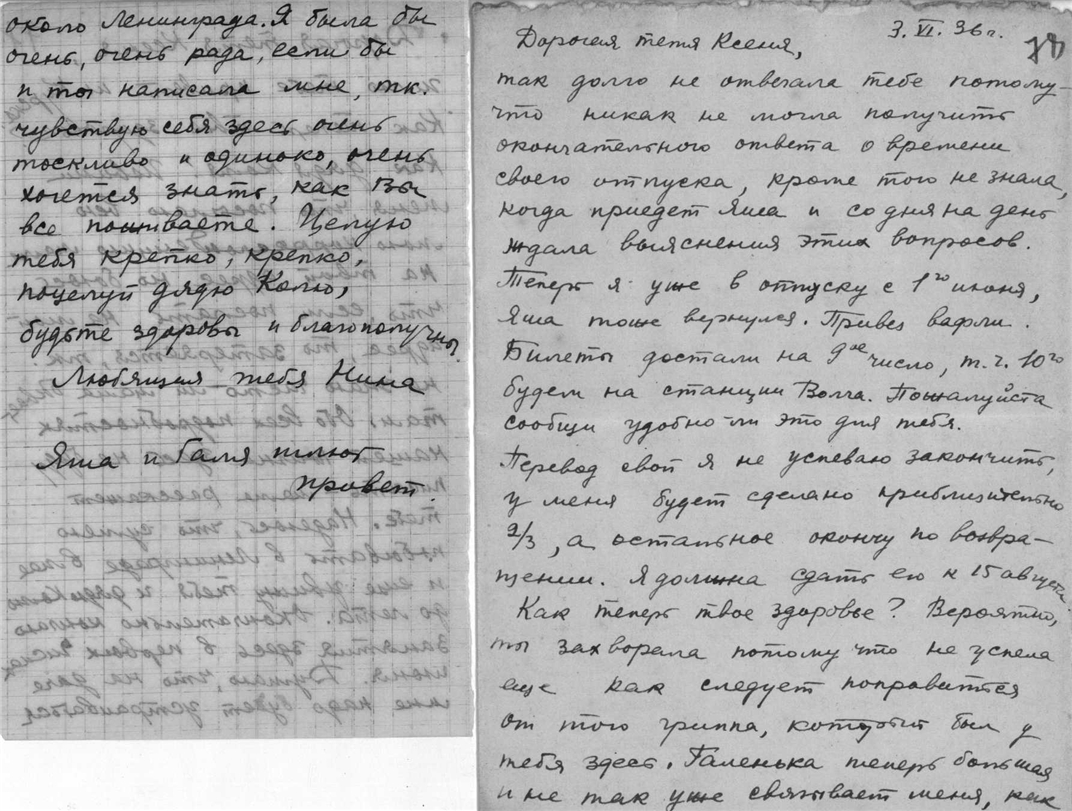 около Ленинграда. Я была бы
очень, очень рада, если бы
и ты написала мне, т.к.
чувствую себя здесь очень
тоскливо и одиноко, очень
хочется знать, как Вы
все поживаете. Целую
тебя крепко, крепко,
поцелуй дядю Колю,
будьте здоровы и благополучны.
Любящая тебя Нина
Яша и Галя шлют
привет.
3.VI.36 г.
Дорогая тетя Ксеня,
так долго не отвечала тебе потому-
что никак не могла получить
окончательного ответа о времени
своего отпуска, кроме того не знала,
когда приедет Яша и со дня на день
ждала выяснения этих вопросов.
Теперь я уже в отпуску с 1го июня,
Яша тоже вернулся. Привез вафли.
Билеты достали на 9ое число, т.ч. 10го
будем на станции Волга. Пожалуйста
сообщи удобно ли это для тебя.
Перевод свой я не успеваю закончить,
у меня будет сделано приблизительно
2/3, а остальное окончу по возвра-
щении. Я должна сдать его к 15 августа.
Как теперь твое здоровье? Вероятно,
ты захворала потому что не успела
еще как следует поправиться
от того гриппа, который был у
тебя здесь. Галенька теперь большая
и не так уже связывает меня, как